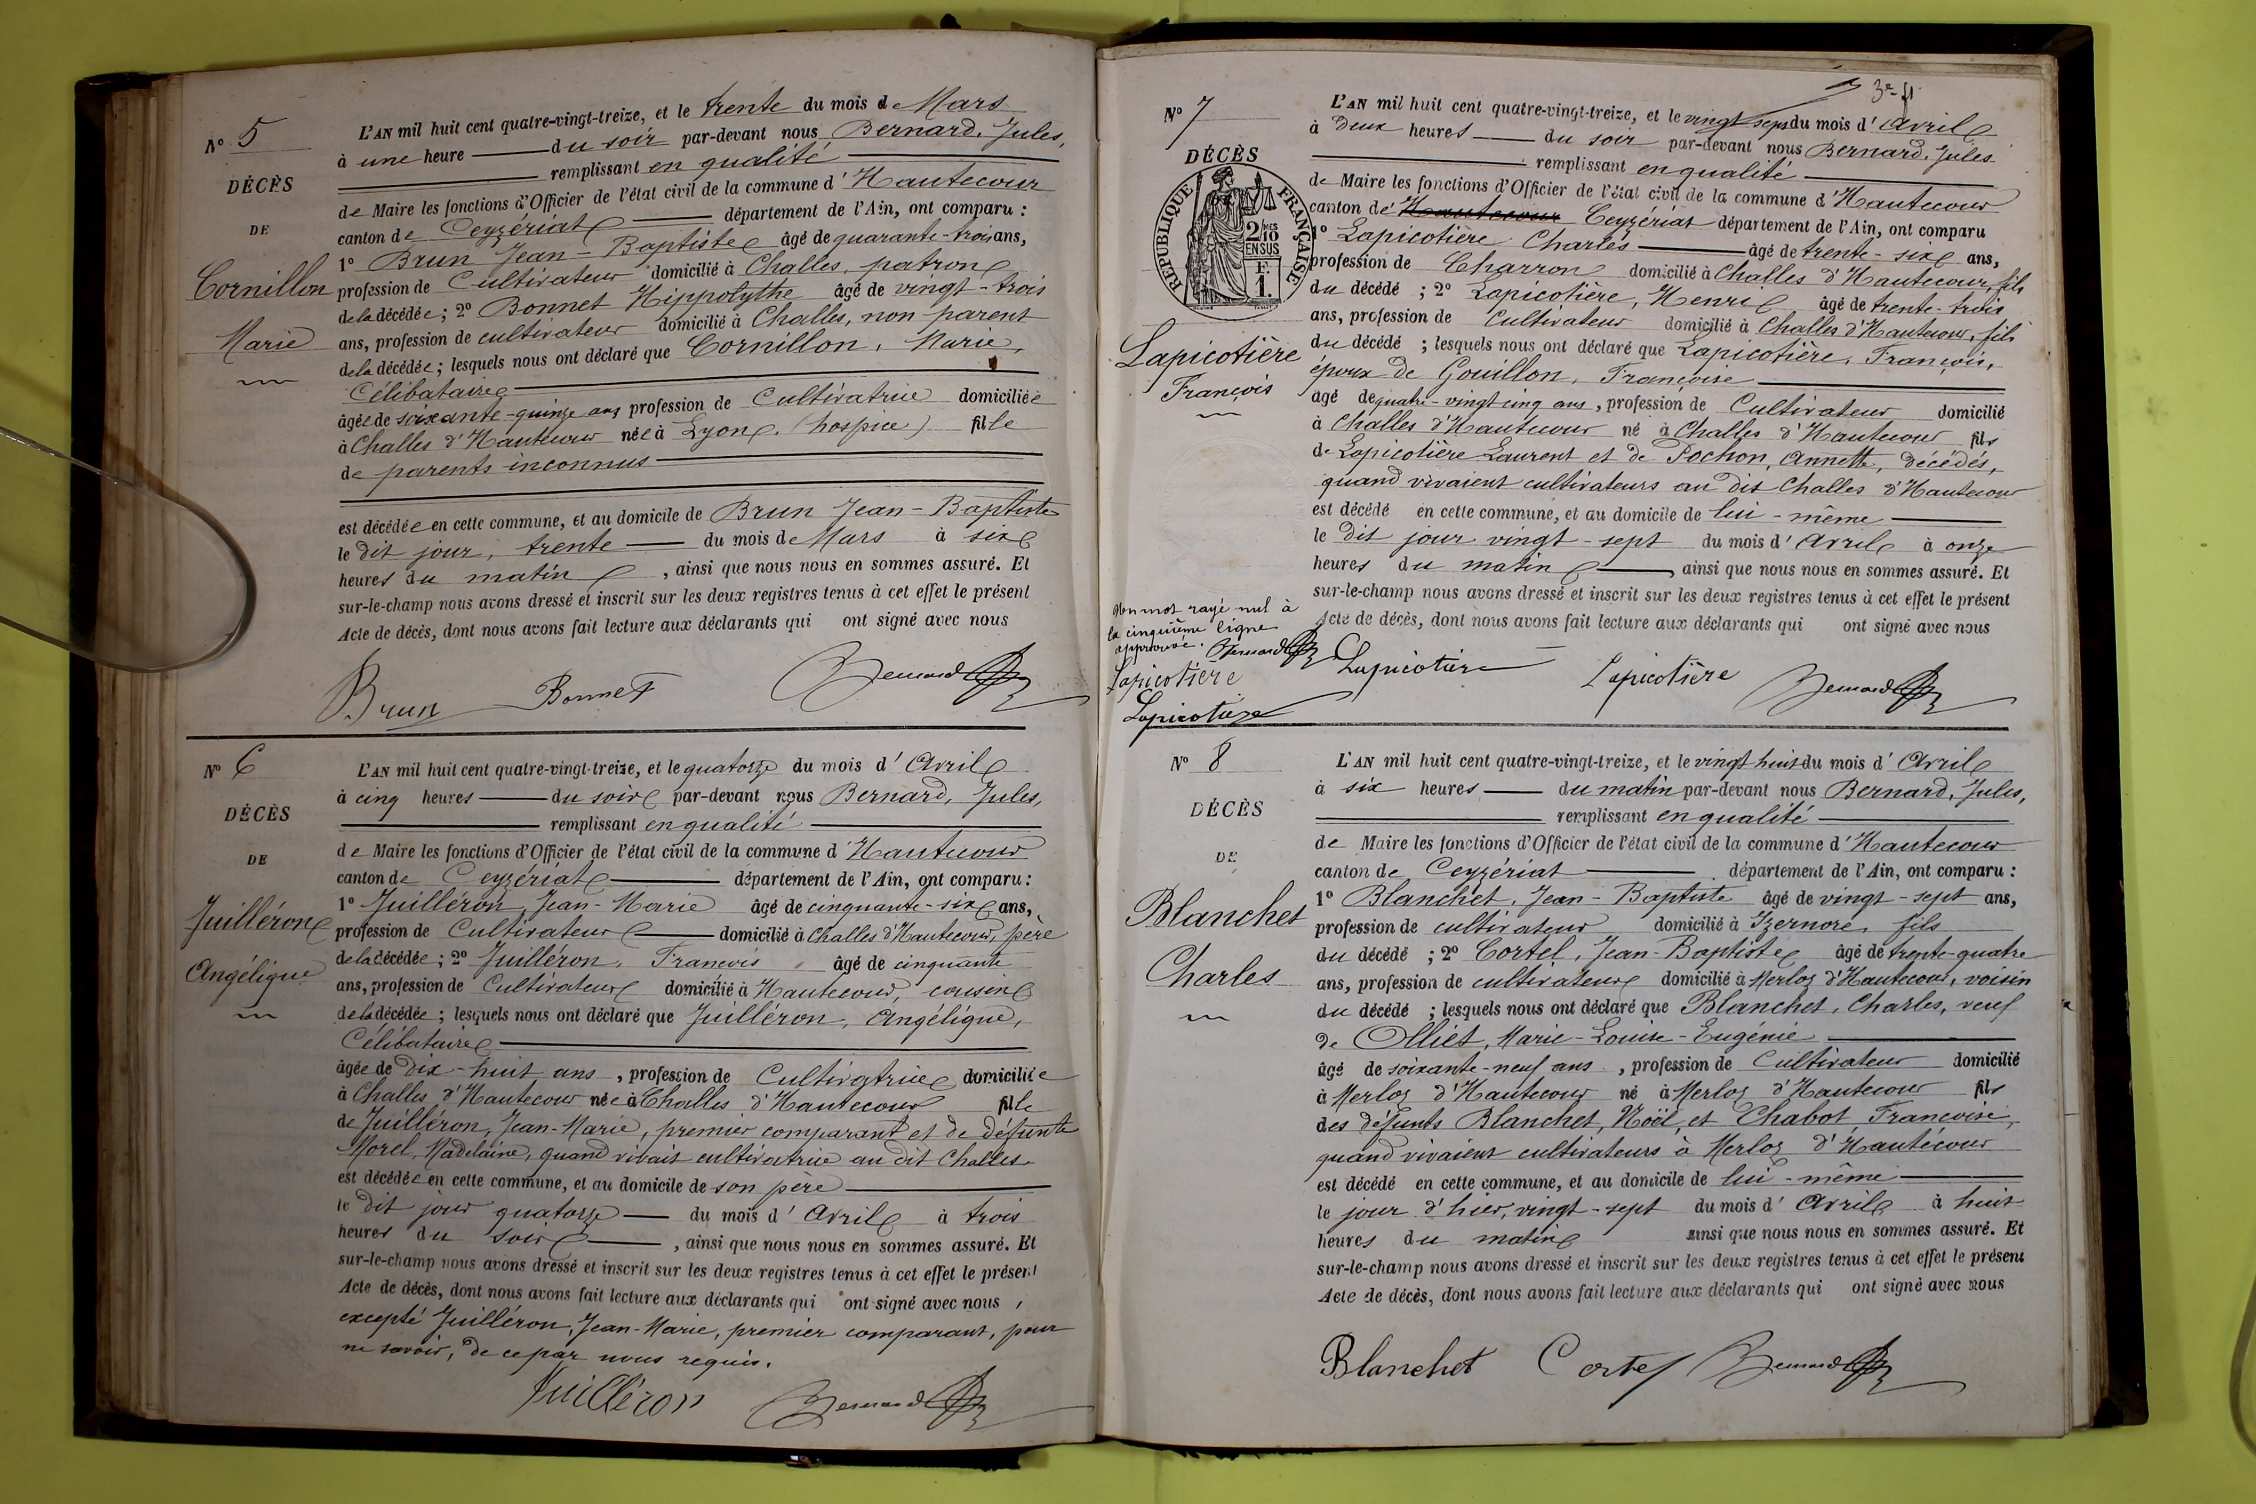 N° 5
DÉCÈS
DE
Cornillon
Marie
L'AN mil huit cent quatre-vingt-treize, et le trente du mois de Mars
à une heure du soir par-devant nous Bernard, Jules,
remplissant en qualité
de Maire les fonctions d'Officier de l'état civil de la commune d'Hautecour
canton de Ceyzériat département de l'Ain, ont comparu :
1° Brun Jean-Baptiste âgé de quarante-trois ans,
profession de Cultivateur domicilié à Challes, patron
de la décédée ; 2° Bonnet Hippolythe âgé de vingt-trois
ans, profession de cultivateur domicilié à Challes, non parent
de la décédée ; lesquels nous ont déclaré que Cornillon, Marie,
Célibataire
âgée de soixante-quinze ans profession de Cultivatrice domiciliée
à Challes d'Hautecour née à Lyon (hospice) fille
de parents inconnus
est décédée en cette commune, et au domicile de Brun Jean-Baptiste
le dit jour, trente du mois de Mars à six
heures du matin , ainsi que nous nous en sommes assuré. Et
sur-le-champ nous avons dressé et inscrit sur les deux registres tenus à cet effet le présent
Acte de décès, dont nous avons fait lecture aux déclarants qui ont signé avec nous
Brun Bonnet Bernard
N° 6
DÉCÈS
DE
Juilléron
Angélique
L'AN mil huit cent quatre-vingt-treize, et le quatorze du mois d'Avril
à cinq heures du soir par-devant nous Bernard, Jules,
remplissant en qualité
de Maire les fonctions d'Officier de l'état civil de la commune d'Hautecour
canton de Ceyzériat département de l'Ain, ont comparu :
1° Juilléron, Jean-Marie âgé de cinquante-six ans,
profession de Cultivateur domicilié à Challes d'Hautecour, père
de la décédée ; 2° Juilléron, Francois âgé de cinquante
ans, profession de Cultivateur domicilié à Hautecour, cousin
de la décédée ; lesquels nous ont déclaré que Juilléron, Angélique,
Célibataire
âgée de dix-huit ans , profession de Cultivatrice domiciliée
à Challes d'Hautecour née à Challes d'Hautecour fille
de Juilléron, Jean-Marie, premier comparant et de défunte
Morel, Madelaine, quand vivait cultivatrice au dit Challes
est décédée en cette commune, et au domicile de son père
le dit jour quatorze du mois d'Avril à trois
heures du soir , ainsi que nous nous en sommes assuré. Et
sur-le-champ nous avons dressé et inscrit sur les deux registres tenus à cet effet le présent
Acte de décès, dont nous avons fait lecture aux déclarants qui ont signé avec nous ,
excepté Juilléron, Jean-Marie, premier comparant, pour
ne savoir, de ce par nous requis.
Juilléron Bernard
3e f.
N° 7
DÉCÈS
REPUBLIQUE FRANÇAISE
2/10 EN SUS
F. 1.
Lapicotière
François
L'AN mil huit cent quatre-vingt-treize, et le vingt sept du mois d'Avril
à Deux heures du soir par-devant nous Bernard, Jules
remplissant en qualité
de Maire les fonctions d'Officier de l'état civil de la commune d'Hautecour
canton de Hautecour Ceyzériat département de l'Ain, ont comparu
1° Lapicotière Charles âgé de trente-six ans,
profession de Charron domicilié à Challes d'Hautecour, fils
du décédé ; 2° Lapicotière, Henri âgé de trente-trois
ans, profession de Cultivateur domicilié à Challes d'Hautecour, fils
du décédé ; lesquels nous ont déclaré que Lapicotière, François,
époux de Gouillon, Françoise
agé de quatre-vingt cinq ans , profession de Cultivateur domicilié
à Challes d'Hautecour né à Challes d'Hautecour fils
de Lapicotière Laurent et de Pochon, Annette, décédés,
quand vivaient cultivateurs au dit Challes d'Hautecour
est décédé en cette commune, et au domicile de lui-même
le dit jour vingt-sept du mois d'Avril à onze
heures du matin , ainsi que nous nous en sommes assuré. Et
sur-le-champ nous avons dressé et inscrit sur les deux registres tenus à cet effet le présent
Acte de décès, dont nous avons fait lecture aux déclarants qui ont signé avec nous
Un mot rayé nul à
la cinquième ligne
approuvé. Bernard
Lapicotière
Lapicotière
Lapicotière Lapicotière Bernard
N° 8
DÉCÈS
DE
Blanchet
Charles
L'AN mil huit cent quatre-vingt-treize, et le vingt-huit du mois d'Avril
à six heures du matin par-devant nous Bernard, Jules,
remplissant en qualité
de Maire les fonctions d'Officier de l'état civil de la commune d'Hautecour
canton de Ceyzériat département de l'Ain, ont comparu :
1° Blanchet, Jean-Baptiste âgé de vingt-sept ans,
profession de cultivateur domicilié à Izernore, fils
du décédé ; 2° Cortel, Jean-Baptiste âgé de trente-quatre
ans, profession de cultivateur domicilié à Merloz d'Hautecour, voisin
du décédé ; lesquels nous ont déclaré que Blanchet, Charles, veuf
de Olliet, Marie-Louise-Eugénie
âgé de soixante-neuf ans , profession de Cultivateur domicilié
à Merloz d'Hautecour né à Merloz d'Hautecour fils
des défunts Blanchet, Noël, et Chabot Françoise,
quand vivaient cultivateurs à Merloz d'Hautecour
est décédé en cette commune, et au domicile de lui-même
le jour d'hier, vingt-sept du mois d'Avril à huit
heures du matin ainsi que nous nous en sommes assuré. Et
sur-le-champ nous avons dressé et inscrit sur les deux registres tenus à cet effet le présent
Acte de décès, dont nous avons fait lecture aux déclarants qui ont signé avec nous
Blanchet Cortel Bernard